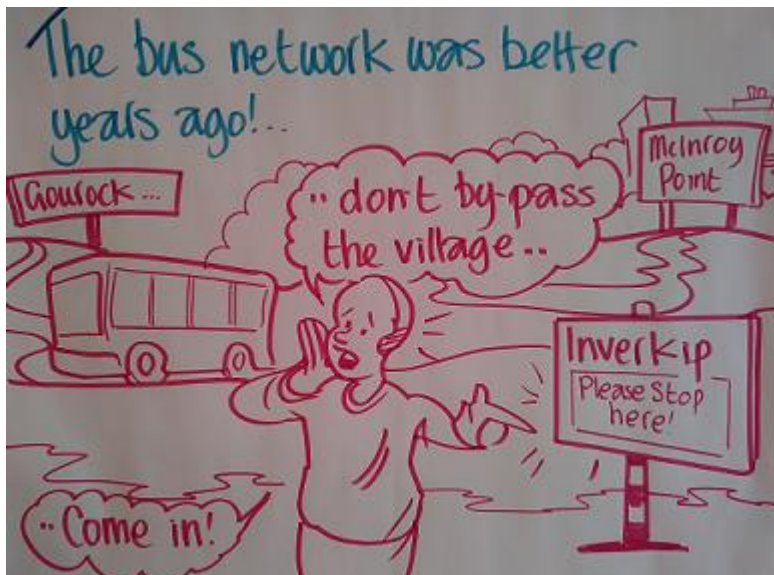 The bus network was better
years ago!..
Gourock...
.. don't by-pass
the village..
McInroy
Point
Inverkip
Please Stop
here!
.. Come in!